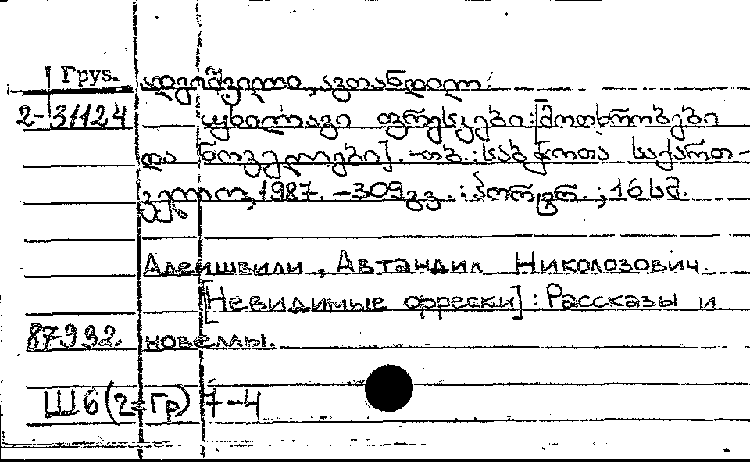 Груз.
ადეიშვილი, ავთანდილ.
2-31124 უხილავი ფრესკები: [მოთხრობები
და ნოველები]. -თბ.: საბჭოთა საქართ-
ველო, 1987. -309 გვ.: პორტრ.; 16 სმ.
Адеишвили, Автандил Николозович.
[Невидимые фрески]: Рассказы и
87992 новеллы.
Ш6(2=Гр)7-4